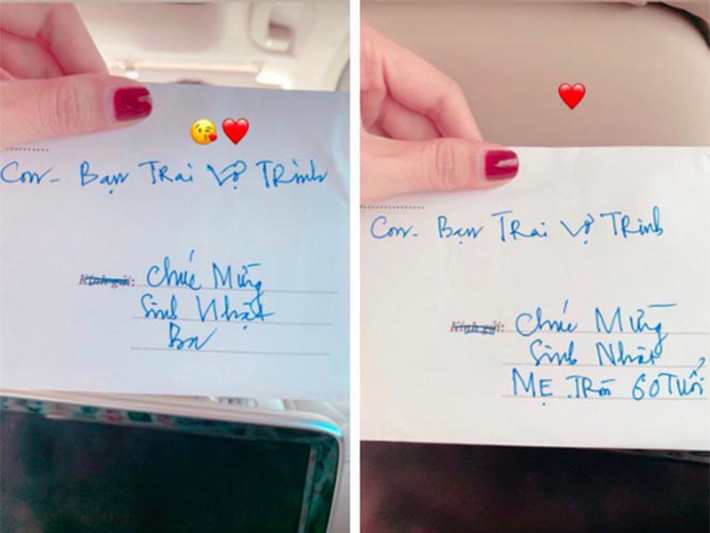 Con - Bạn Trai Vợ Trình
Kính gửi: Chúc Mừng
Sinh Nhật
Ba
Con - Bạn Trai Vợ Trinh
Kính gửi: Chúc Mừng
Sinh Nhật
MẸ Tròn 60 Tuổi